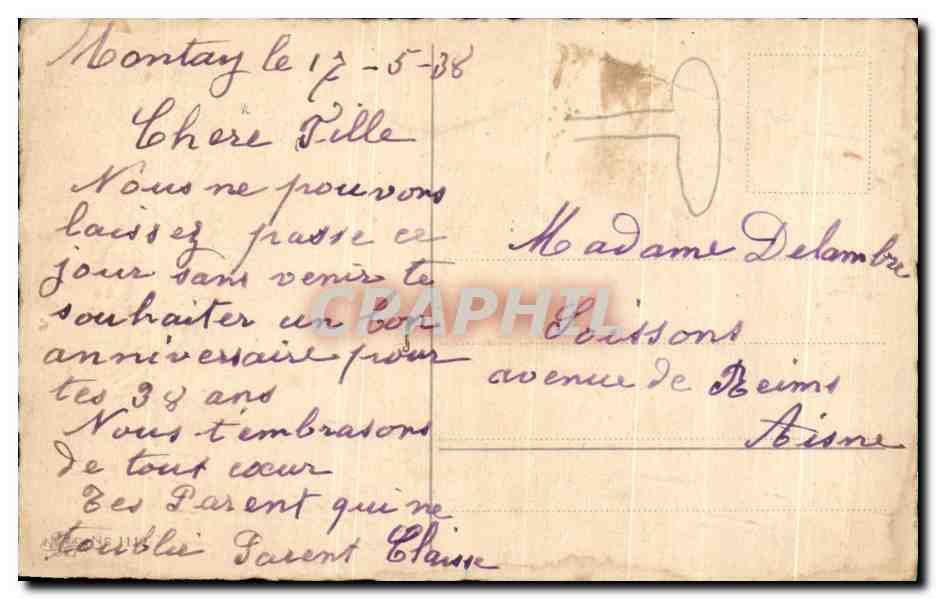 Montay le 17-5-38
Chere Fille
Nous ne pouvons
laissez passe ce
jour sans venir te
souhaiter un bon
anniversaire pour
tes 38 ans
Nous t'embrasons
de tout cœur
Tes Parent qui ne
t'oublie Parent Claisse
Madame Delambre
Soissons
avenue de Reims
Aisne
CPAPHIL